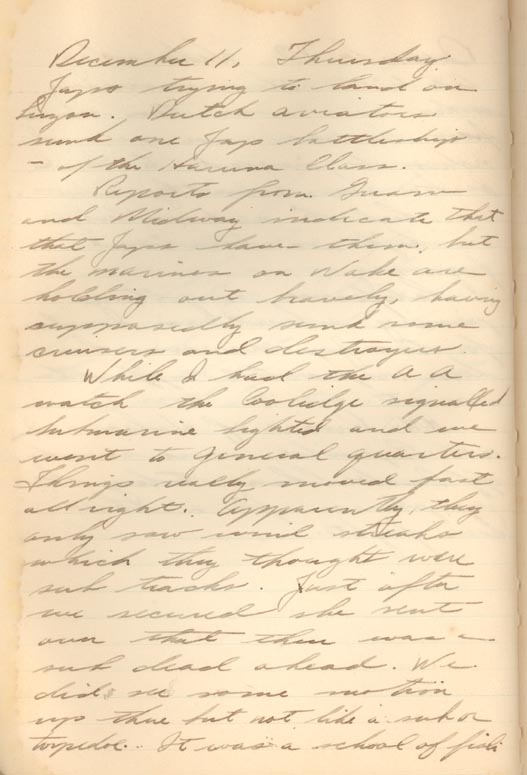 December 11, Thursday
Japs trying to land on
Luzon. Dutch aviators
sunk one Jap battleship
- of the Haruna Class.
Reports from Guam
and Midway indicate that
that Japs have them, but
the marines on Wake are
holding out bravely, having
supposedly sunk some
cruisers and destroyers.
While I had the A A
watch the Coolidge signalled
submarine sighted and we
went to general quarters.
Things really moved fast
all right. Apparently, they
only saw wind streaks
which they thought were
sub tracks. Just after
we secured she sent
over that there was a
sub dead ahead. We
did see some motion
up there but not like a sub or
torpedoe. It was a school of fish